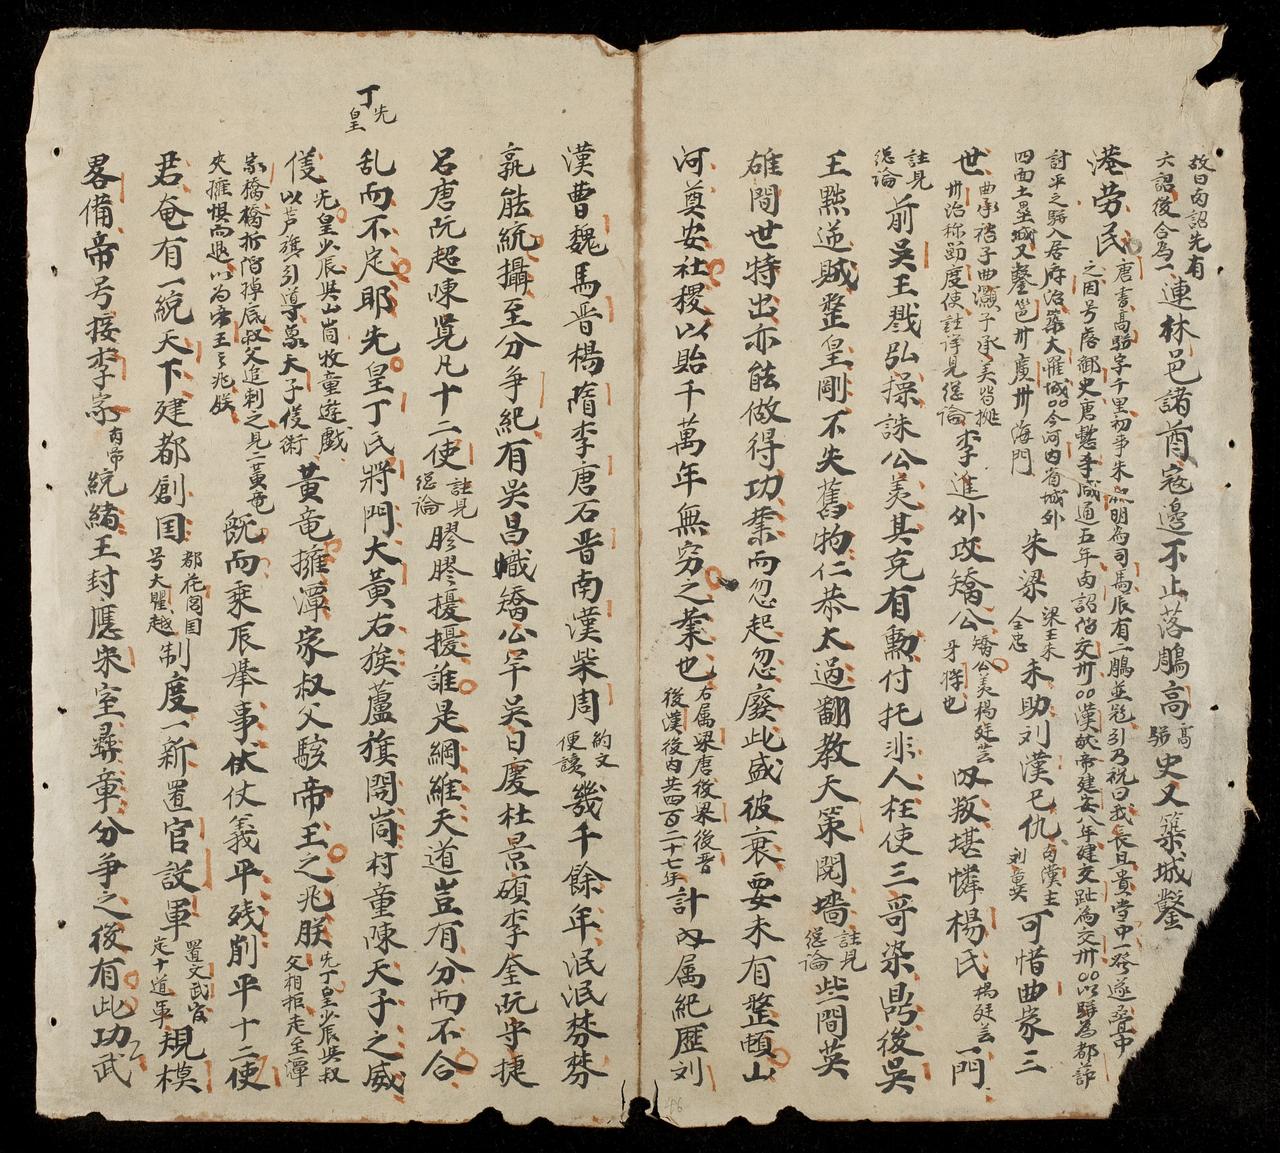 故曰内詔先有
六詔後合為一連林邑諸酋寇邊不止落鵰高高駢史又築城鑿
港劳民唐書高駢字千里初事朱明為司馬辰有二鵰並飛引乃祝曰我長且貴當中一發遂叠中
之因号落鵰御史唐懿宗咸通五年内詔陷交州漢献帝建安八年建交趾為交州以駢為都節
討平之駢入居府治築大羅城今河内省城外
四面土壘城又鑿邕州廣州海門朱梁梁王朱全忠未助刘漢已仇南漢主刘䶮可惜曲家三
世曲承裕子曲灝子承美皆據州治称節度使註詳見総論李進外攻矯公矯公羡楊廷芸牙將也内叛堪憐楊氏楊廷芸一門
註見総論前吳王戮弘操誅公羡其克有勳付托非人枉使三哥染鼎後吳
王黜逆賊整皇剛不失舊物仁恭太過翻教天策鬩墻註見総論些間英
雄間世特出亦能做得功業而忽起忽廢此盛彼衰要未有整頓山
河奠安社稷以貽千萬年無穷之業也右属梁唐後梁後晋後漢後内共四百二十七年計内属紀歷刘
漢曹魏馬晋楊隋李唐石晋南漢柴周約文便讀幾千餘年泯泯棼棼
孰能統攝至分争紀有吳昌幟矯公罕吳日慶杜景碩李奎阮守捷
呂唐阮超陳覽凡十二使註見総論膠膠擾擾誰是綱維天道豈有分而不合
丁先皇
乱而不定耶先皇丁氏將門大黃右族蘆旗閙崗村童陳天子之威
儀先皇少辰與山崗牧童遊戲以芦旗引導象天子儀術黃竜擁潭家叔父駭帝王之兆朕先丁皇少辰與叔父相拒走至潭
家橋橋折陷掉底叔父追刺之見二黃竜
夾擁惧而退以为帝王之兆朕既而乘辰舉事伏仗義平残削平十二使
君奄有一統天下建都創国都花閭国号大瞿越制度一新置官設軍置文武官定十道軍規模
畧備帝号接李家内帝統緒王封應宋室彞章分争之後有此功武